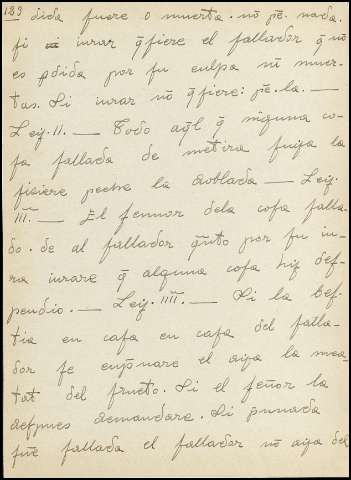 123 dida fuere o muerta. nõ pẽ. nada.
si iurar q̃siere el fallador q̃ nõ
es pdida por su culpa ni muer-
ta. Si iurar nõ q̃siere: pẽ. la. —
Ley. II. — Todo aq̃l q̃ ninguna co-
sa fallada de metira fuya la
fiziere peche la doblada — Ley.
III. — El sennor dela cosa falla-
do. de al fallador q̃nto por su iu-
ra iurare q̃ alguna cosa hy des-
pendio. — Ley. IIII. — Si la bes-
tia en casa en casa del falla-
dor se enp̃nare el aya la mea-
tat del fructo. Si el señor la
despues demandare. Si punada
fuẽ fallada el fallador nõ aya del